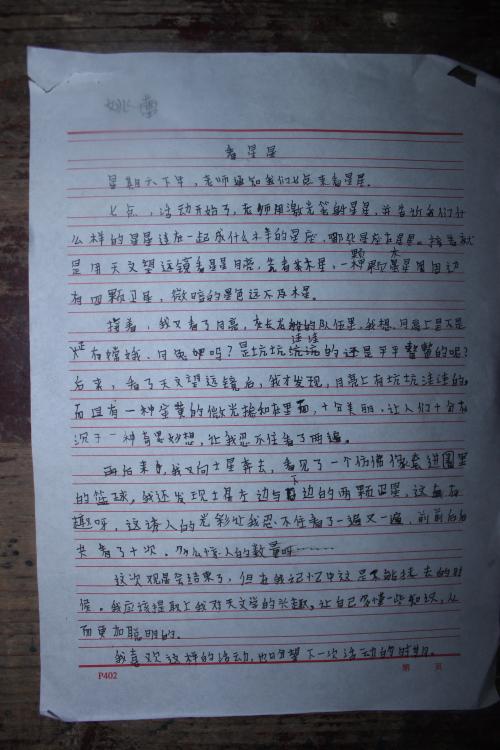 看星星
星期六下午，老师通知我们七点来看星星。
七点，活动开始了，老师用激光笔射星星，并告诉我们什
么样的星星连在一起成什么样的星座，哪些星座在哪里。接着就
是用天文望远镜看星星月亮，先看木星，一颗木星周边
有四颗卫星，微暗的星色远不及木星。
接着，我又看了月亮，在长龙般的队伍里，我想，月亮上是不是
还有嫦娥、月兔呢吗？是坑坑洼洼的还是平平整整的呢？
后来，看了天文望远镜后，我才发现，月亮上有坑坑洼洼的，
而且有一种金黄的微光掺和在里面，十分美丽，让人们十分在
沉于一种奇思妙想，让我忍不住看了两遍。
再后来，我又向土星奔去，看见了一个仿佛像套进圈里
的篮球，我还发现土星左边与下边的两颗卫星，这真有
趣呀，这诱人的光彩让我忍不住看了一遍又一遍，前前后后
共看了十次。多么惊人的数量呀……
这次观星会结束了，但在我记忆中这是不能抹去的时
候。我应该提取上我对天文学的兴趣，让自己多懂一些知识，从
而更加聪明的。
我喜欢这样的活动，也盼望下一次活动的时期。
P402
第 页